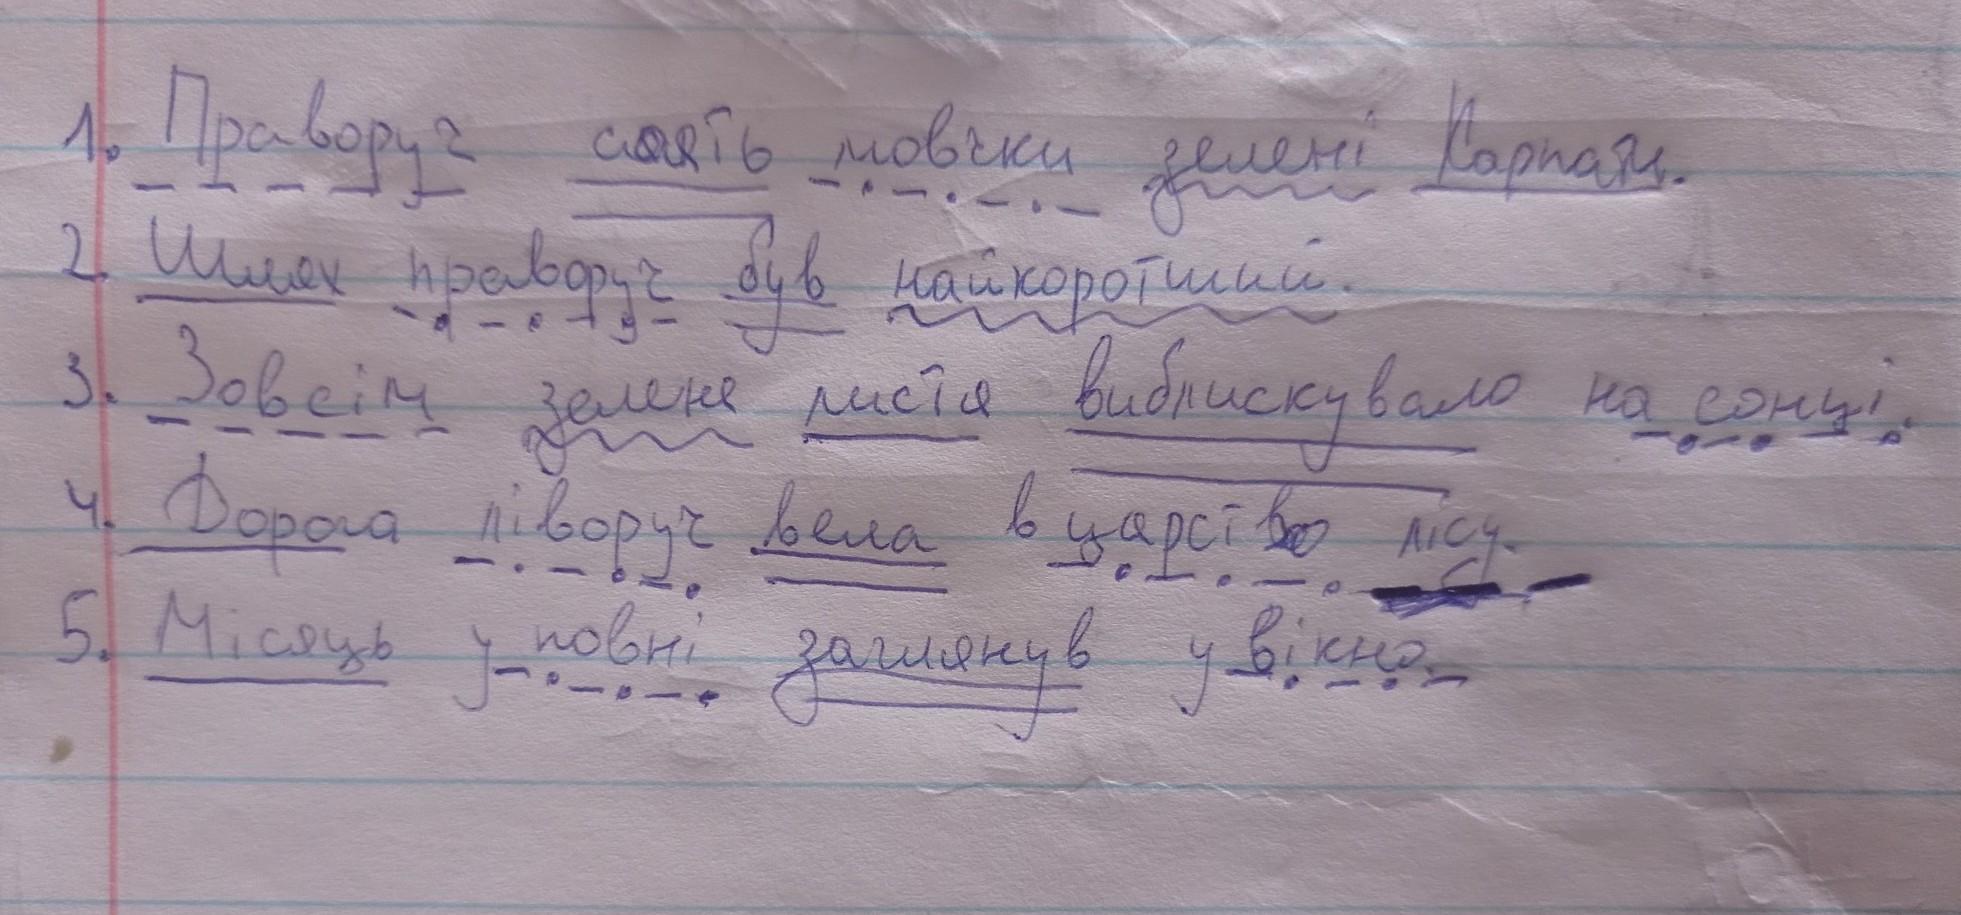 1. Праворуч сяять мовчки зелені Карпати.
2. Шлях праворуч був найкоротший.
3. Зовсім зелене листя виблискувало на сонці.
4. Дорога ліворуч вела в царство лісу.
5. Місяць у повні заглянув у вікно.